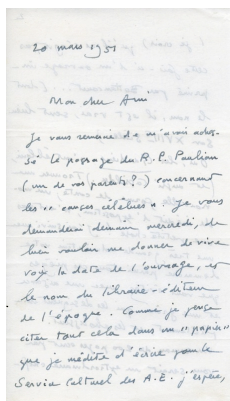 20 mars 1951
Mon cher Ami
Je vous remercie de m'avoir adres-
sé le passage du R. P. Paulian
(un de vos parents ?) concernant
les "causes célèbres". Je vous
demanderai demain mercredi, de
bien vouloir me donner de vive
voix la date de l'ouvrage, et
le nom du libraire-éditeur
de l'époque. Comme je pense
citer tout cela dans un "papier"
que je médite d'écrire pour le
Service Culturel des A.E. j'espère,